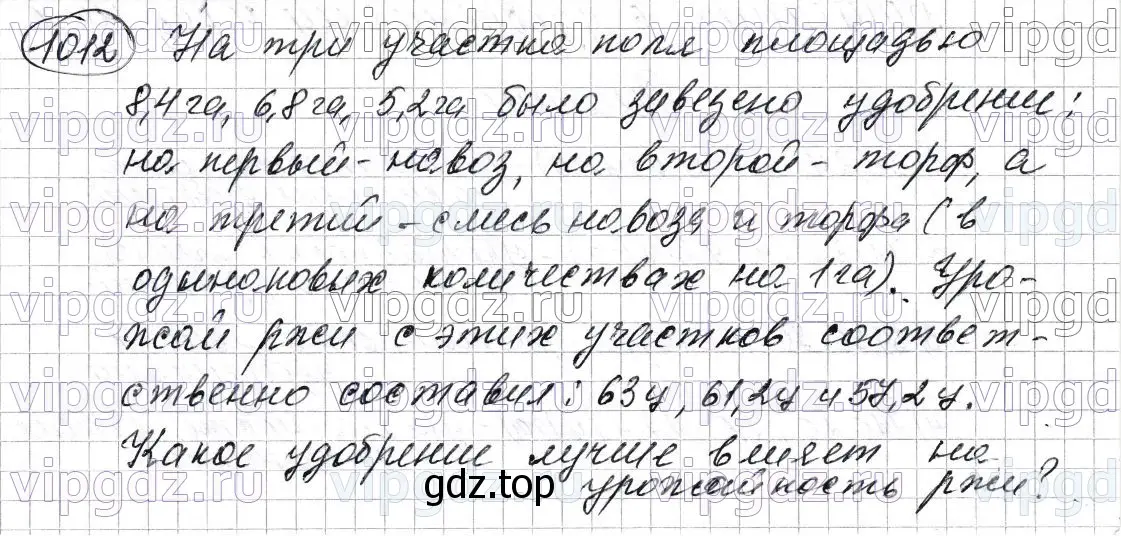 1012 На три участка поля площадью
8,4 га, 6,8 га, 5,2 га было завезено удобрение:
на первый - навоз, на второй - торф, а
на третий - смесь навоза и торфа (в
одинаковых количествах на 1 га). Уро-
жай ржи с этих участков соответ-
ственно составил: 63 ц, 61,2 ц и 57,2 ц.
Какое удобрение лучше влияет на
урожайность ржи?
gdz.top
vipgdz.ru